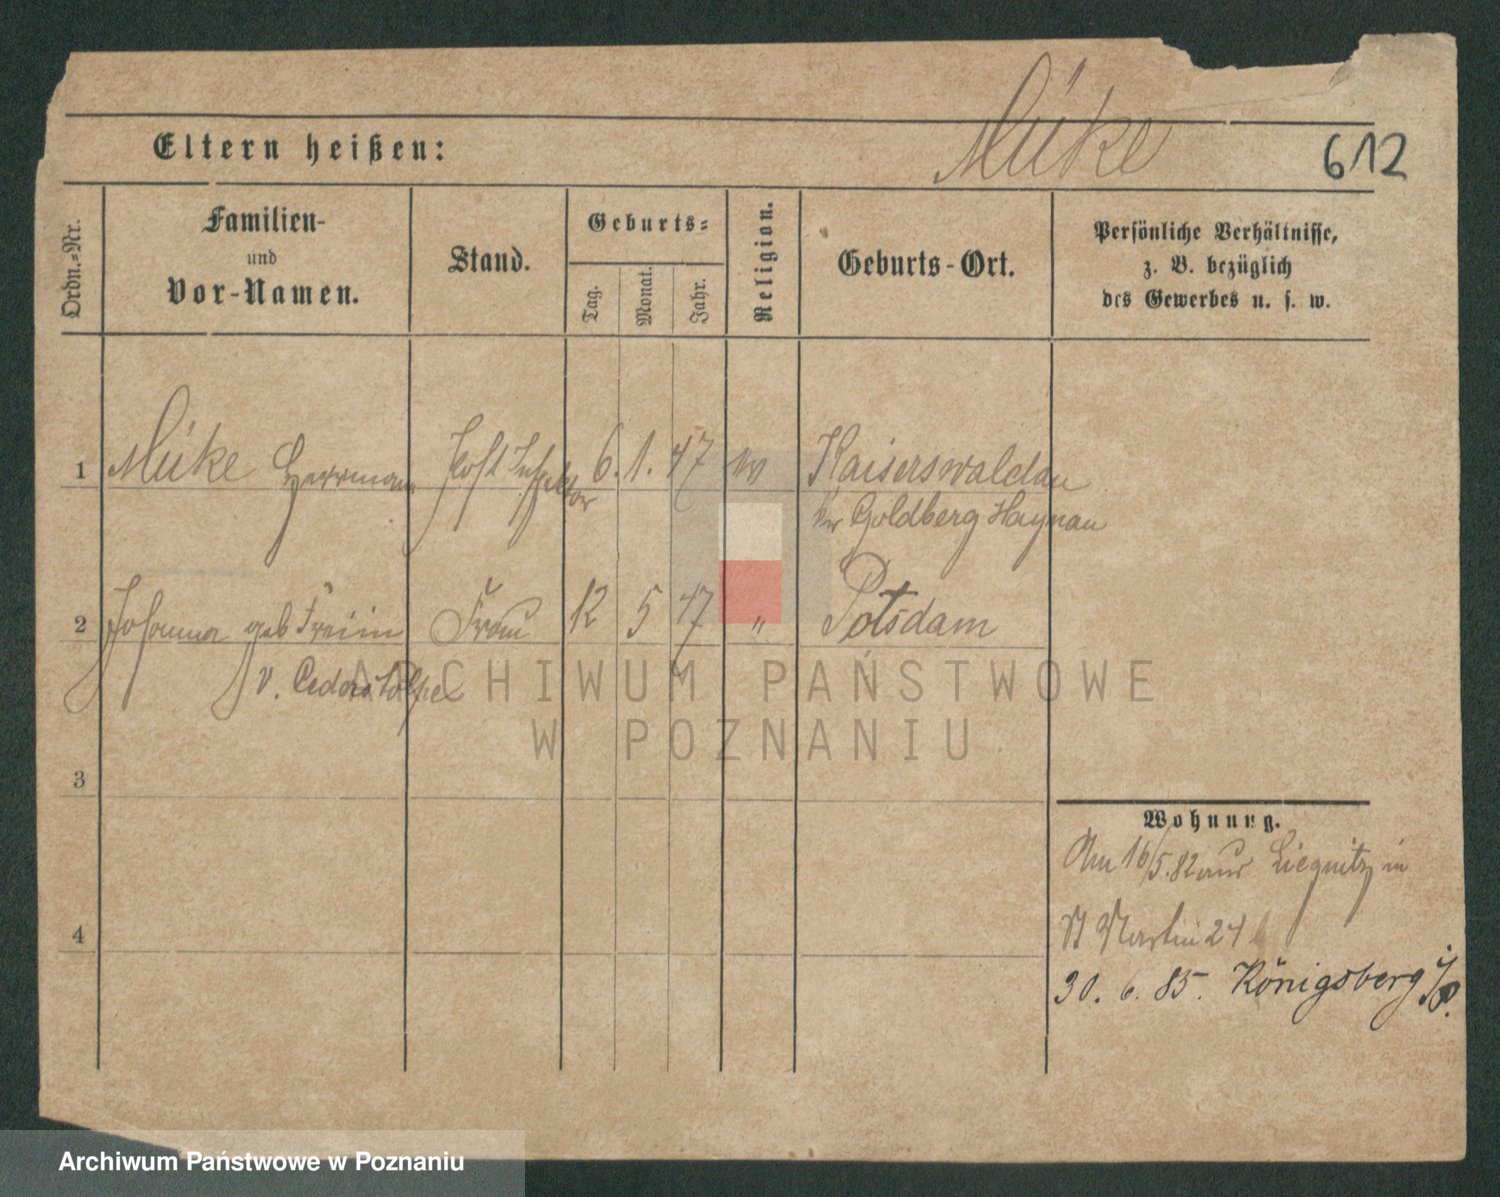 Müke
Eltern heißen:
612
Ordn.-Nr.
Familien-
und
Vor-Namen.
Stand.
Geburts-
Tag.
Monat.
Jahr.
Religion.
Geburts-Ort.
Persönliche Verhältnisse,
z. B. bezüglich
des Gewerbes u. s. w.
1 Müke Herrmann Post Inspektor 6. 1. 47 Kaiserswaldau
Kr Goldberg Haynau
2 Johanna geb Freiin Frau 12 5 47 " Potsdam
v. Cederstolpe
3
4
Wohnung.
Am 16/5.82 aus Liegnitz in
St Martin 24
30. 6. 85. Königsberg i/P.
ARCHIWUM PAŃSTWOWE
W POZNANIU
Archiwum Państwowe w Poznaniu